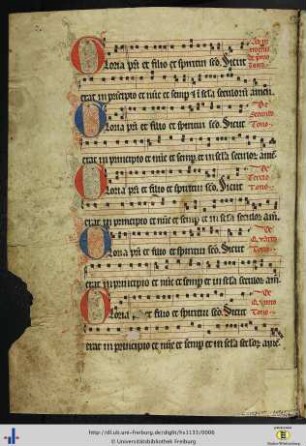 Gloria pri et filio et spiritui sco. Sicut
erat in principio et nūc et semp et in scla seculorū amen.
Gloria pri et filio et spiritui sco. Sicut
De Secundo Tono
erat in principio et nūc et semp et in scla seculor amē.
Gloria pri et filio et spiritui sco. Sicut
De Tercio Tono
erat in principio et nūc et semp et in scla seculor am.
Gloria pri et filio et spiritui sco. Sicut
De Quarto Tono
erat in principio et nūc et semp et in scla seculor am.
Gloria et filio et spiritui sco. Sicut
De Quinto Tono
erat in principio et nūc et semp et in scla seclor amē.
http://dl.ub.uni-freiburg.de/diglit/hs1133/0006
© Universitätsbibliothek Freiburg